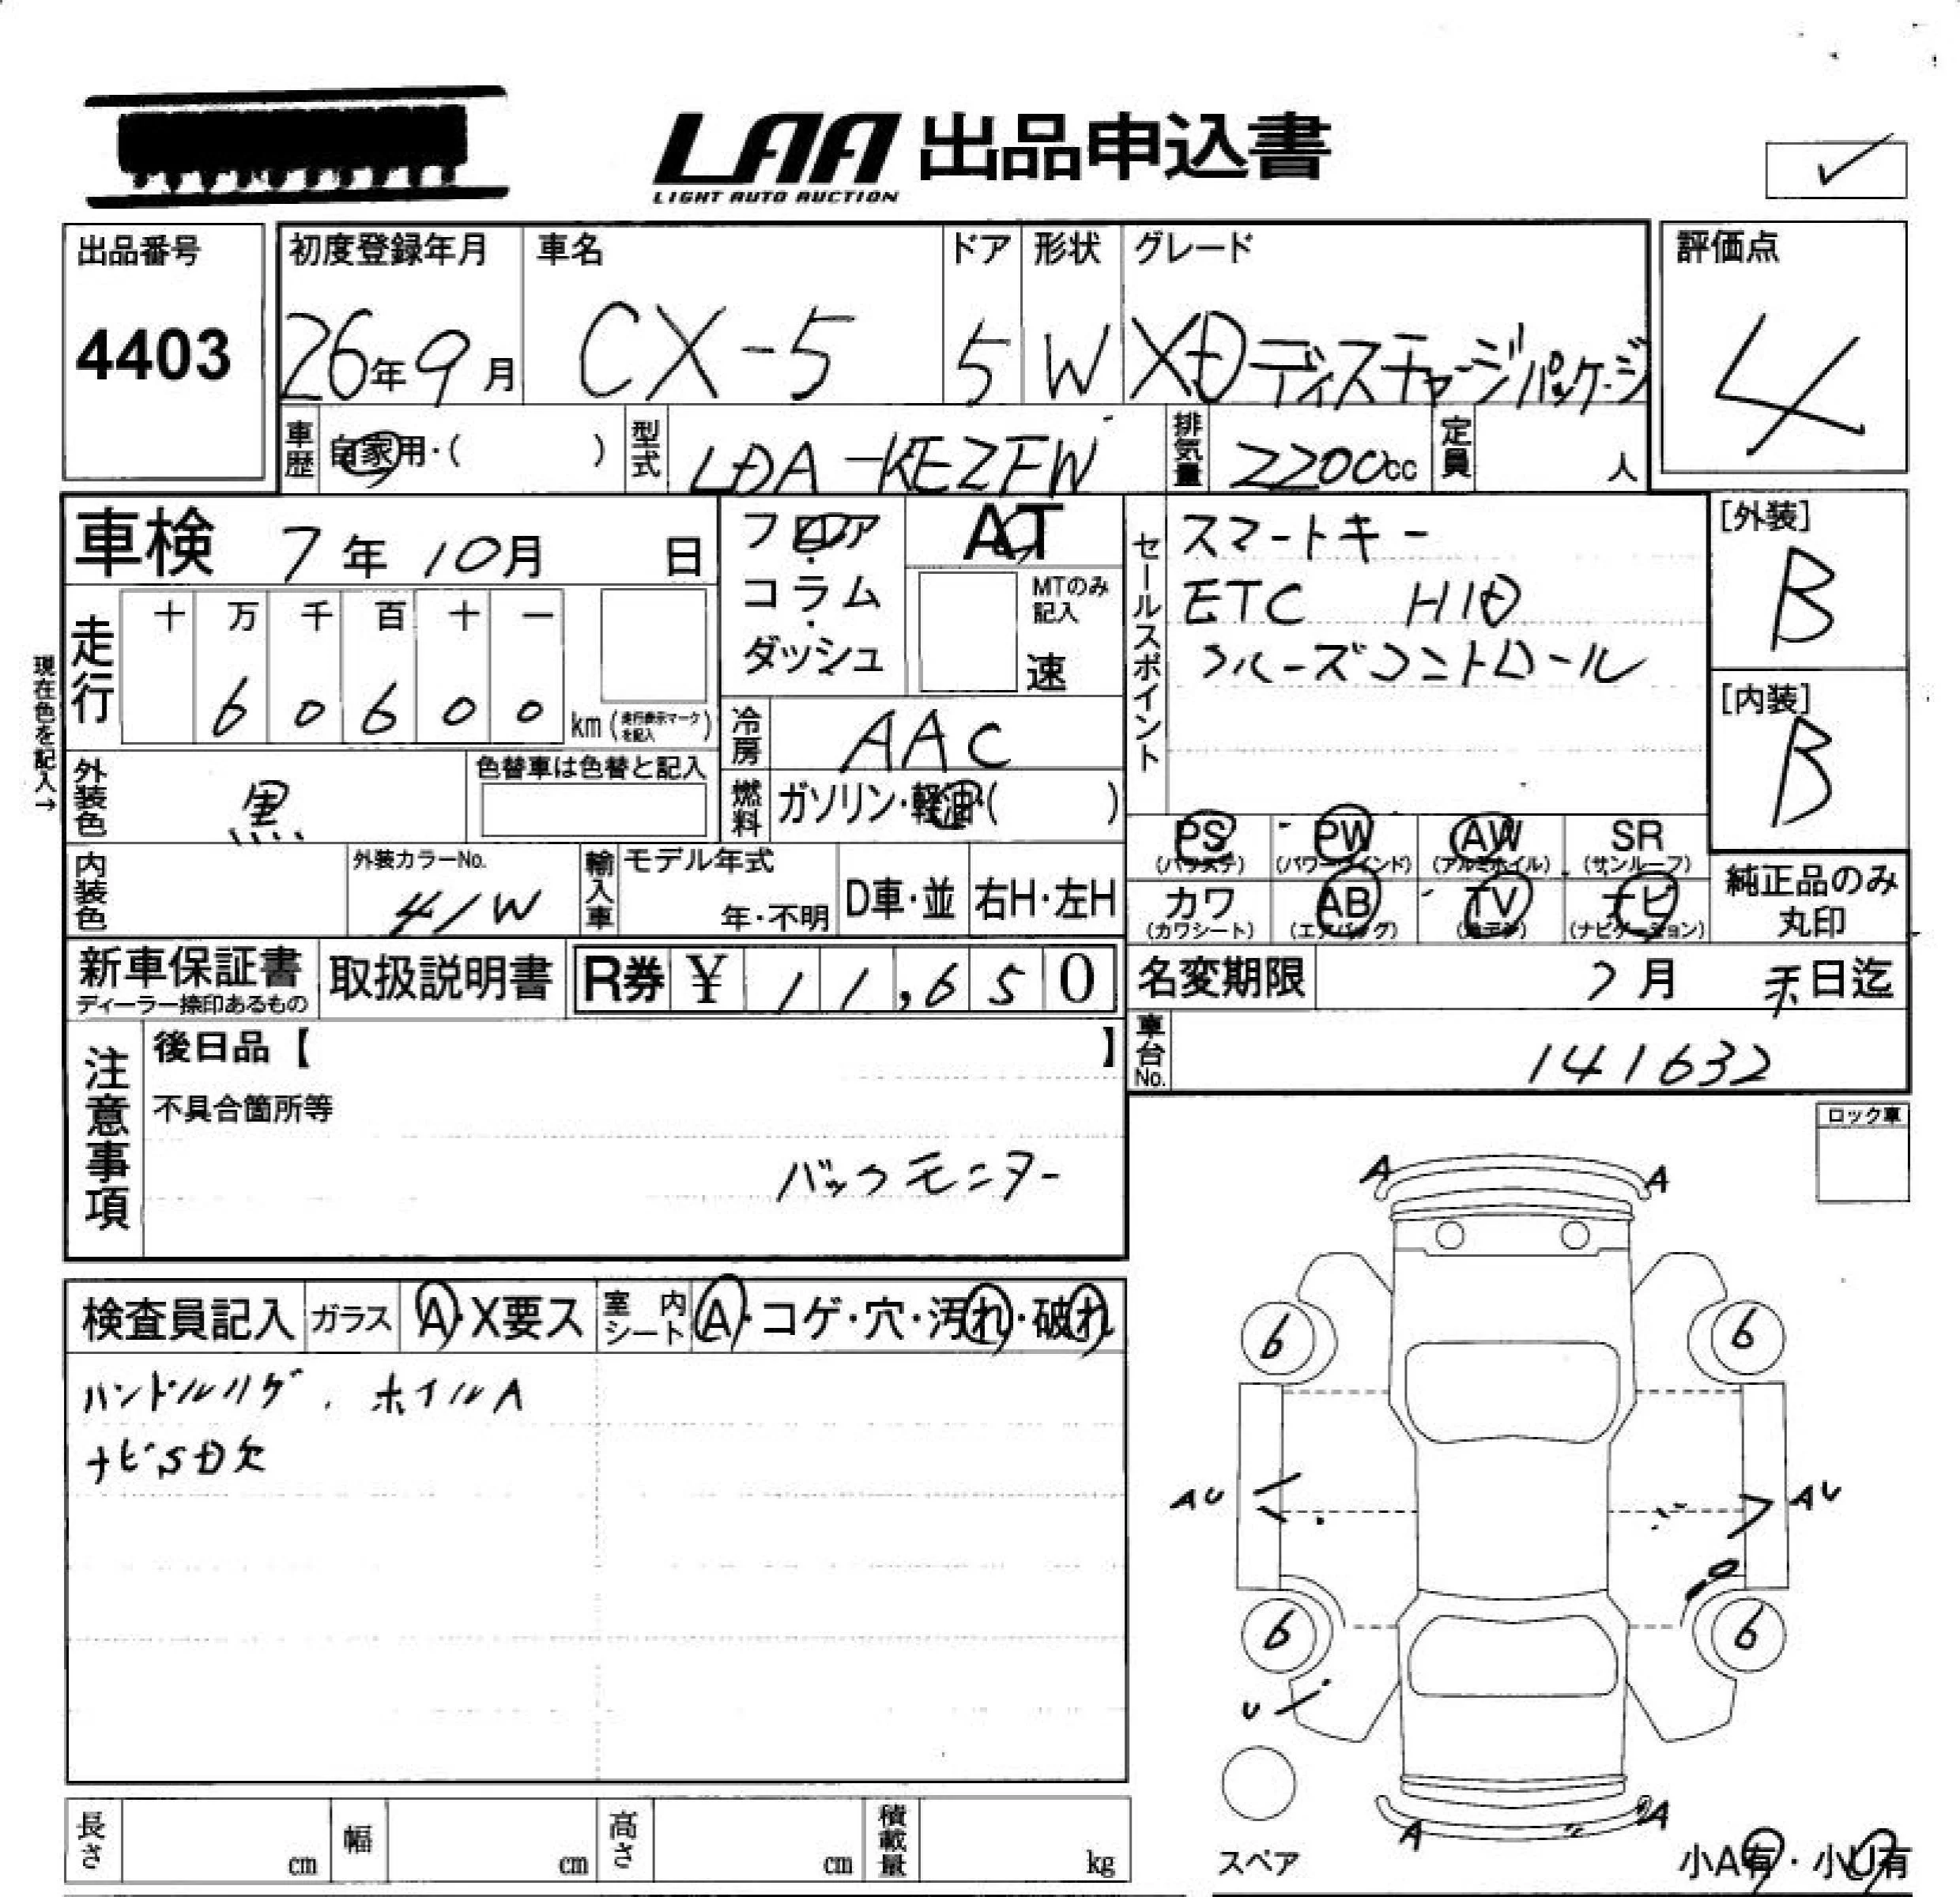 LAA 出品申込書
LIGHT AUTO AUCTION
出品番号
4403
初度登録年月
26年9月
車名
CX-5
ドア
5
形状
W
グレード
XDディスチャージパッケージ
評価点
4
車歴
自家用・( )
型式
LDA-KE2FW
排気量
2200cc
定員
人
車検 7年10月 日
フロア・コラム・ダッシュ
AT
MTのみ記入
速
セールスポイント
スマートキー
ETC HID
クルーズコントロール
[外装]
B
[内装]
B
現在色を記入→
走行
十 万 千 百 十 一
6 0 6 0 0 km (走行表示マークを記入)
冷房
AAC
外装色
黒
色替車は色替と記入
燃料
ガソリン・軽油・( )
PS (パワステ)
PW (パワーウインド)
AW (アルミホイル)
SR (サンルーフ)
カワ (カワシート)
AB (エアバッグ)
TV
ナビ (ナビゲーション)
純正品のみ丸印
内装色
外装カラーNo.
41W
輸入車
モデル年式
年・不明
D車・並
右H・左H
新車保証書
ディーラー捺印あるもの
取扱説明書
R券 ¥ 11,650
名変期限
7月 末日迄
車台No.
141632
注意事項
後日品【 】
不具合箇所等
バックモニター
ロック車
検査員記入
ガラス
A・X要ス
室内シート
A・コゲ・穴・汚れ・破れ
ハンドルハゲ、ホイルA
ナビSD欠
A A
6 6
AU AU
6 6
U
A A
スペア
小A有・小U有
長さ cm
幅 cm
高さ cm
積載量 kg